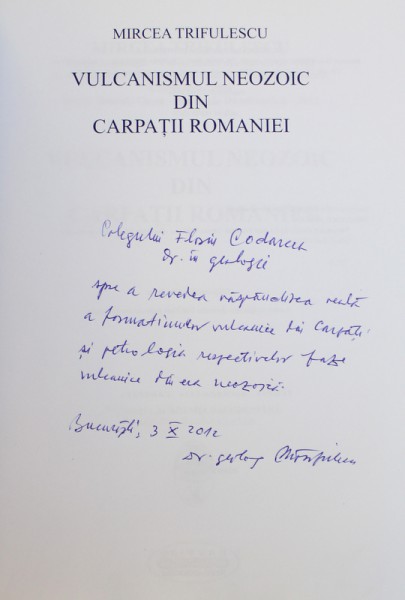 MIRCEA TRIFULESCU
VULCANISMUL NEOZOIC
DIN
CARPAȚII ROMANIEI
Colegului Florin Codarcea
dr. în geologie
spre a revedea răspândirea reală
a formațiunilor vulcanice din Carpați
și petrologia respectivelor faze
vulcanice din era neozoică.
București, 3 X 2012
dr. geolog MTrifulescu